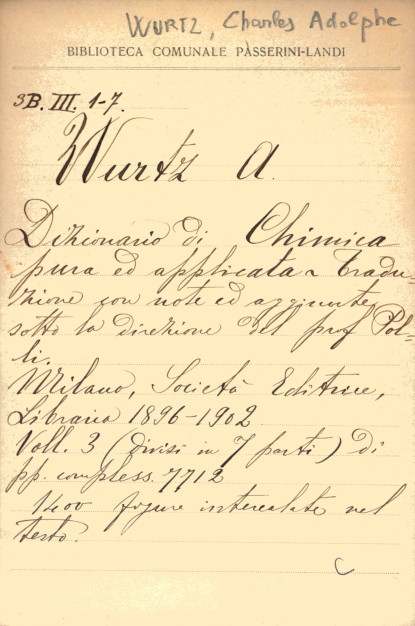 WURTZ, Charles Adolphe
BIBLIOTECA COMUNALE PASSERINI-LANDI
3B. III. 1-7.
Wurtz A.
Dizionario di Chimica
pura ed applicata ~ tradu-
zione con note ed aggiunte
sotto la direzione del prof Pol-
li.
Milano, Società Editrice,
Libraria 1896-1902
Voll. 3 (divisi in 7 parti) di
pp. compless. 7712
1400 figure intercalate nel
testo.
C